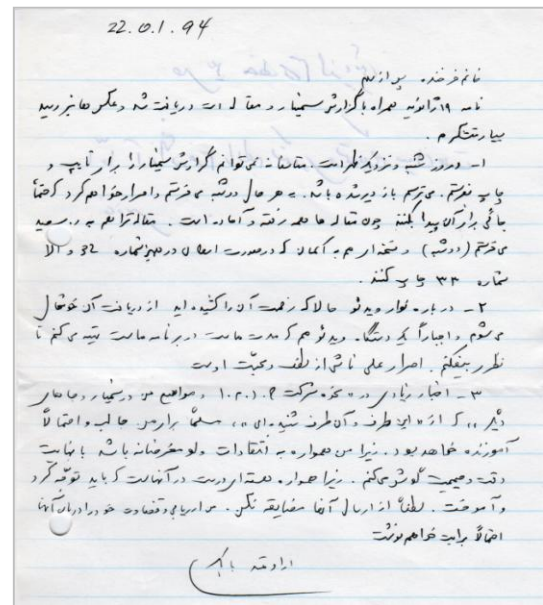 22.01.94
خانم فرخنده پس از سلام
نامه ۱۹ ژانویه همراه با گزارش سمینار و مقاله ات دریافت شد و عکس ها نیز رسید
بسیار متشکرم.
۱- امروز شنبه و نزدیک ظهر است. متاسفانه نمی توانم گزارش سمینار را برای تایپ و
چاپ بفرستم. می ترسم باز دیر شده باشد. به هر حال دوشنبه می فرستم و اصرار خواهم کرد که حتماً
جائی برای آن پیدا بکنند چون مقاله ها همه رفته و آماده است. مقاله ترا هم به سعید
می فرستم (دوشنبه) که در صورت امکان در همین شماره 32 و الا
شماره ۳۳ چاپ کنند.
۲- درباره نوار ویدئو حالا که زحمت آن را کشیده اید از دریافت آن خوشحال
می شوم و اجباراً یک دستگاه ویدئو هم که مدت هاست در برنامه ماست تهیه می کنم تا
نظری بیفکنم. اصرار علی ناشی از لطف و محبت اوست
۳- اخبار زیادی در نحوه شرکت و مواضع من در سمینار و جاهای
دیگر،، که از «این طرف و آن طرف شنیده ای»، مسلماً برای من جالب و احتمالاً
آموزنده خواهد بود. زیرا من همواره به انتقادات ولو مغرضانه باشد با نهایت
دقت و صمیمیت گوش می کنم. زیرا همواره هسته ای درست در آنهاست که باید توجه کرد
و آموخت. لطفاً از ارسال آنها مضایقه نکن. من ارزیابی و قضاوت خود را درباره آنها
احتمالاً برایت خواهم نوشت
ارادتمند بابک